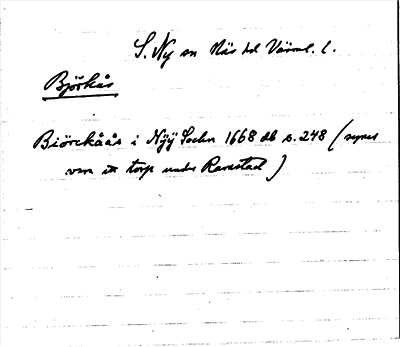 S. Ny sn Näs hd Värml. l.
Björkås
Biörckåås i Nÿÿ Sochn 1668 db s. 248 (synes
vara ett torp under Ramstad)